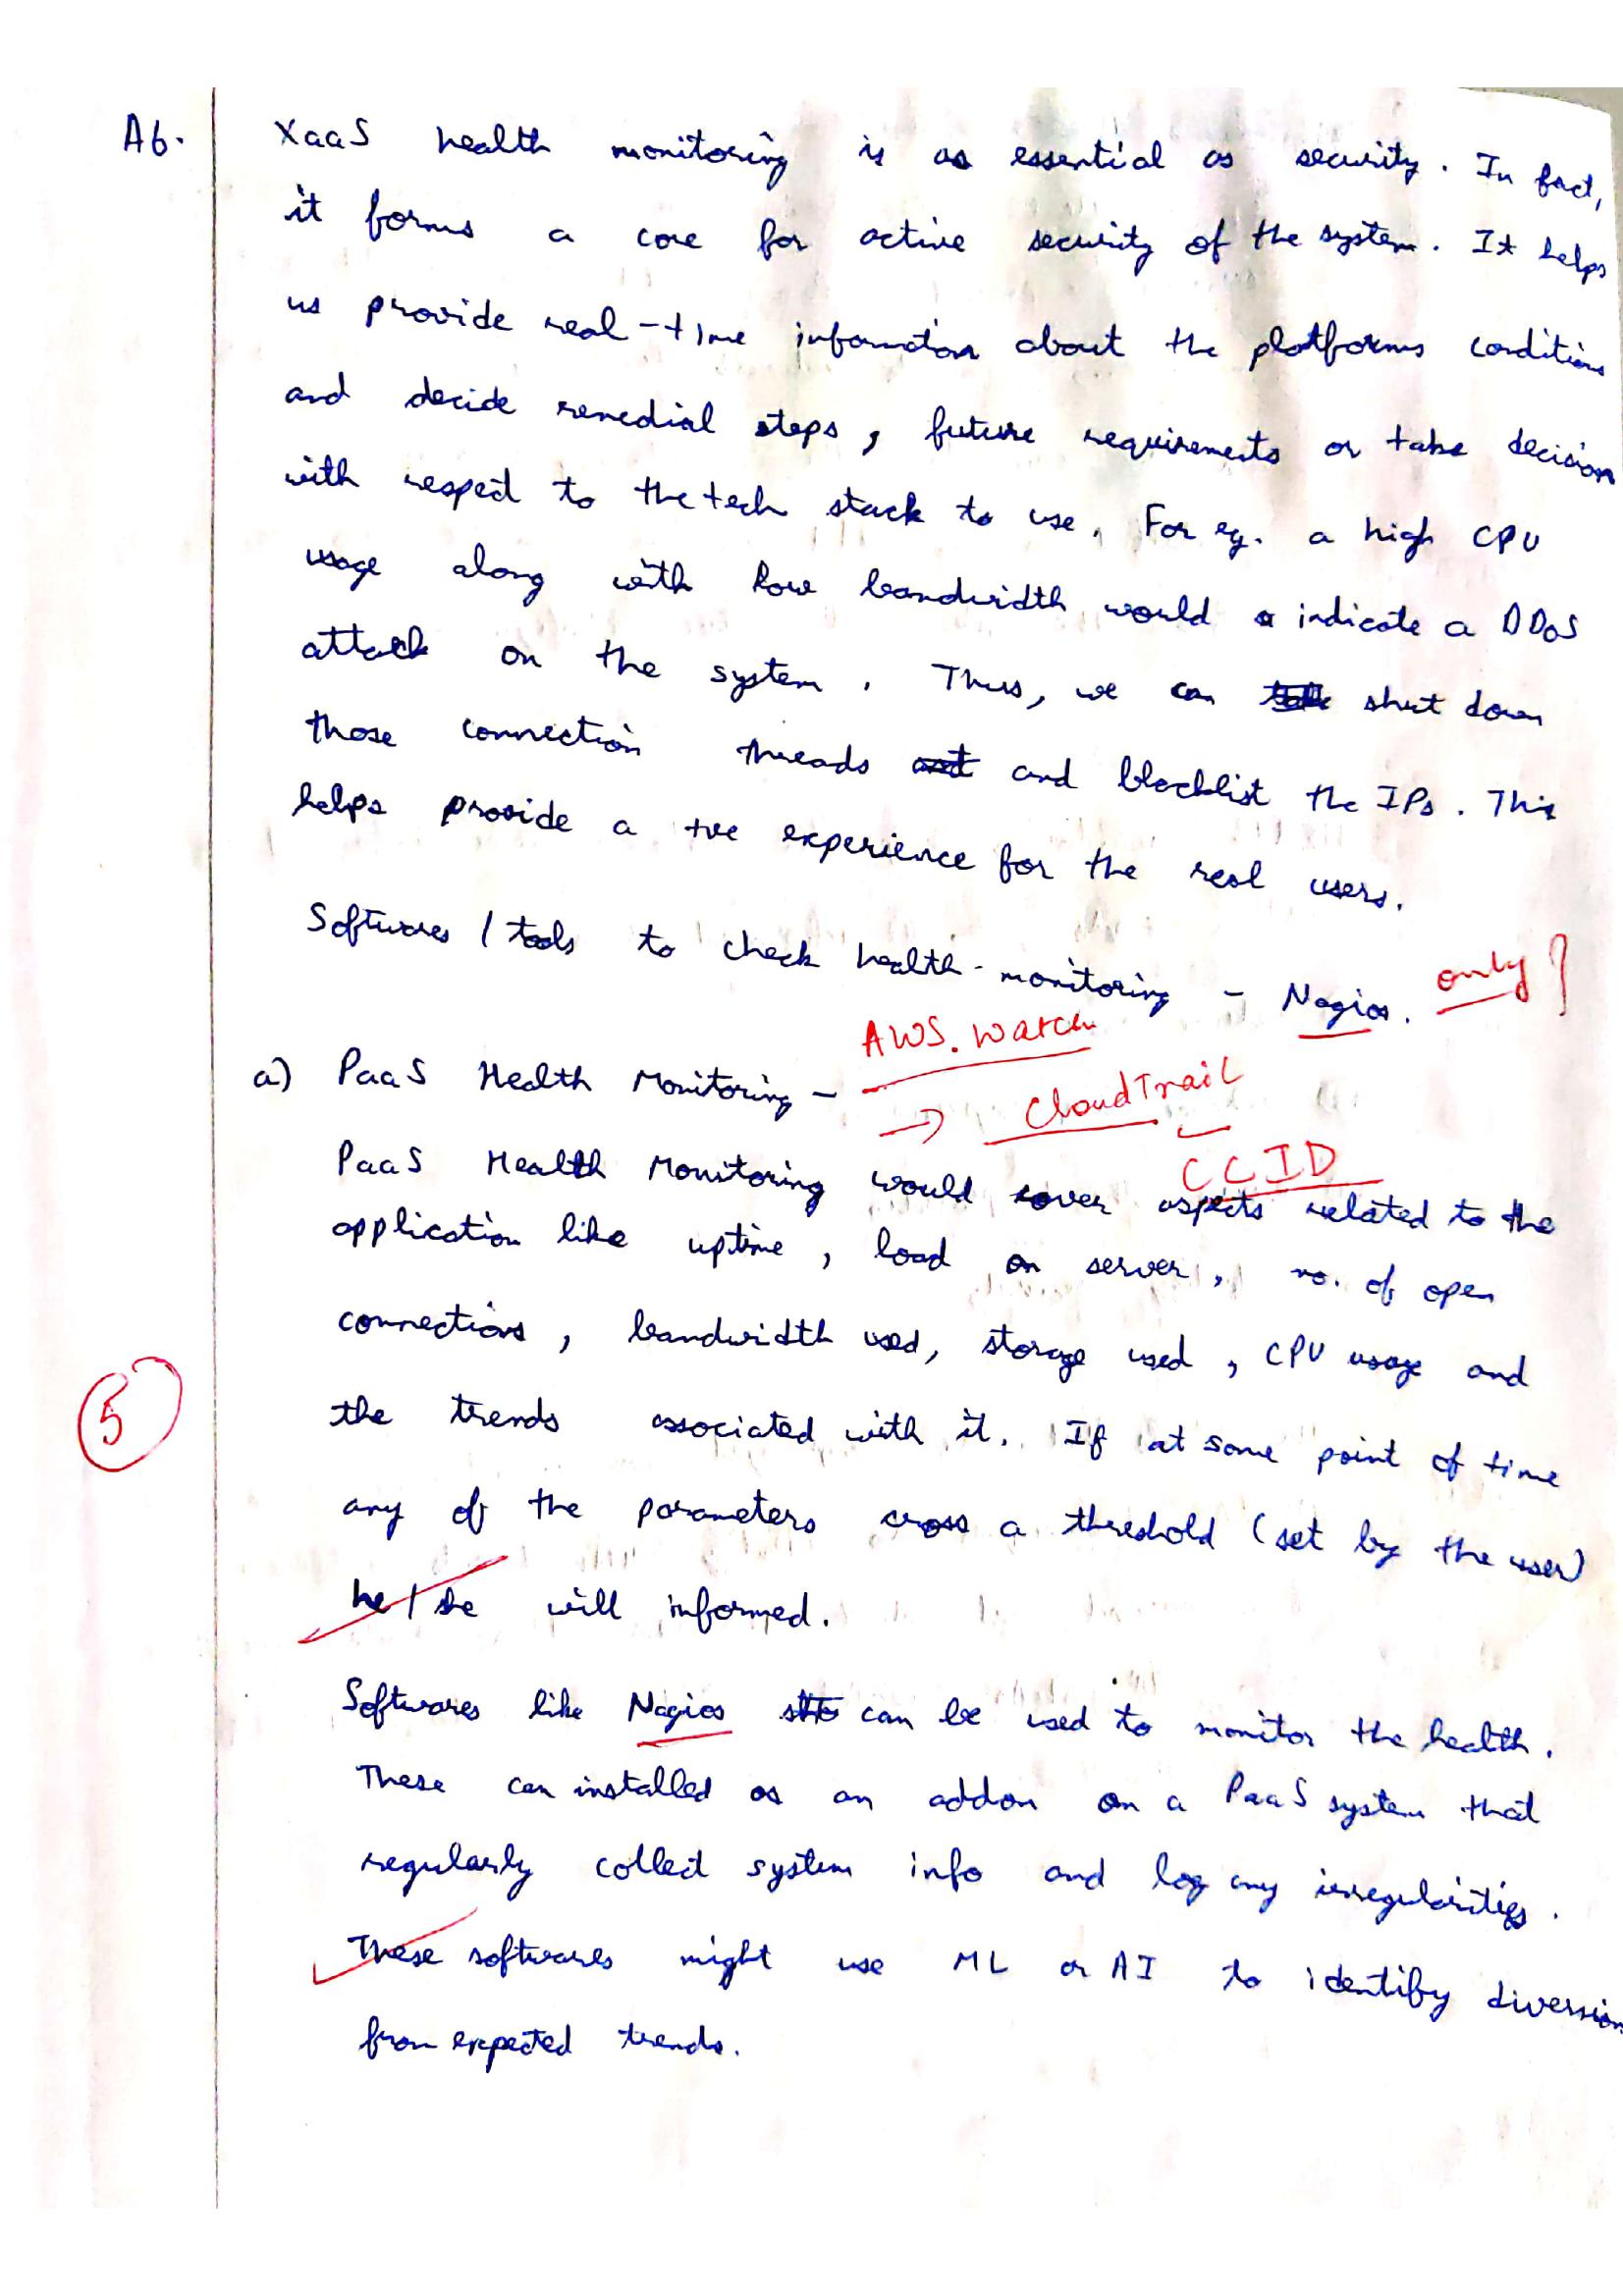 A6. XaaS health monitoring is as essential as security. In fact,
it forms a core for active security of the system. It helps
us provide real-time information about the platforms conditions
and decide remedial steps, future requirements or take decision
with respect to the tech stack to use. For eg. a high CPU
usage along with low bandwidth would indicate a DDoS
attack on the system. Thus, we can shut down
those connection threads and blocklist the IPs. This
helps provide a +ve experience for the real users.
Softwares / tools to check health-monitoring - Nagios. only?
AWS. Watch
a) PaaS Health Monitoring -
→ CloudTrail
CCID
PaaS Health Monitoring would cover aspects related to the
application like uptime, load on server, no. of open
connections, bandwidth used, storage used, CPU usage and
5
the trends associated with it. If at some point of time
any of the parameters cross a threshold (set by the user)
he/she will informed.
Softwares like Nagios can be used to monitor the health.
These can installed as an addon on a PaaS system that
regularly collect system info and log any irregularities.
These softwares might use ML or AI to identify diversion
from expected trends.